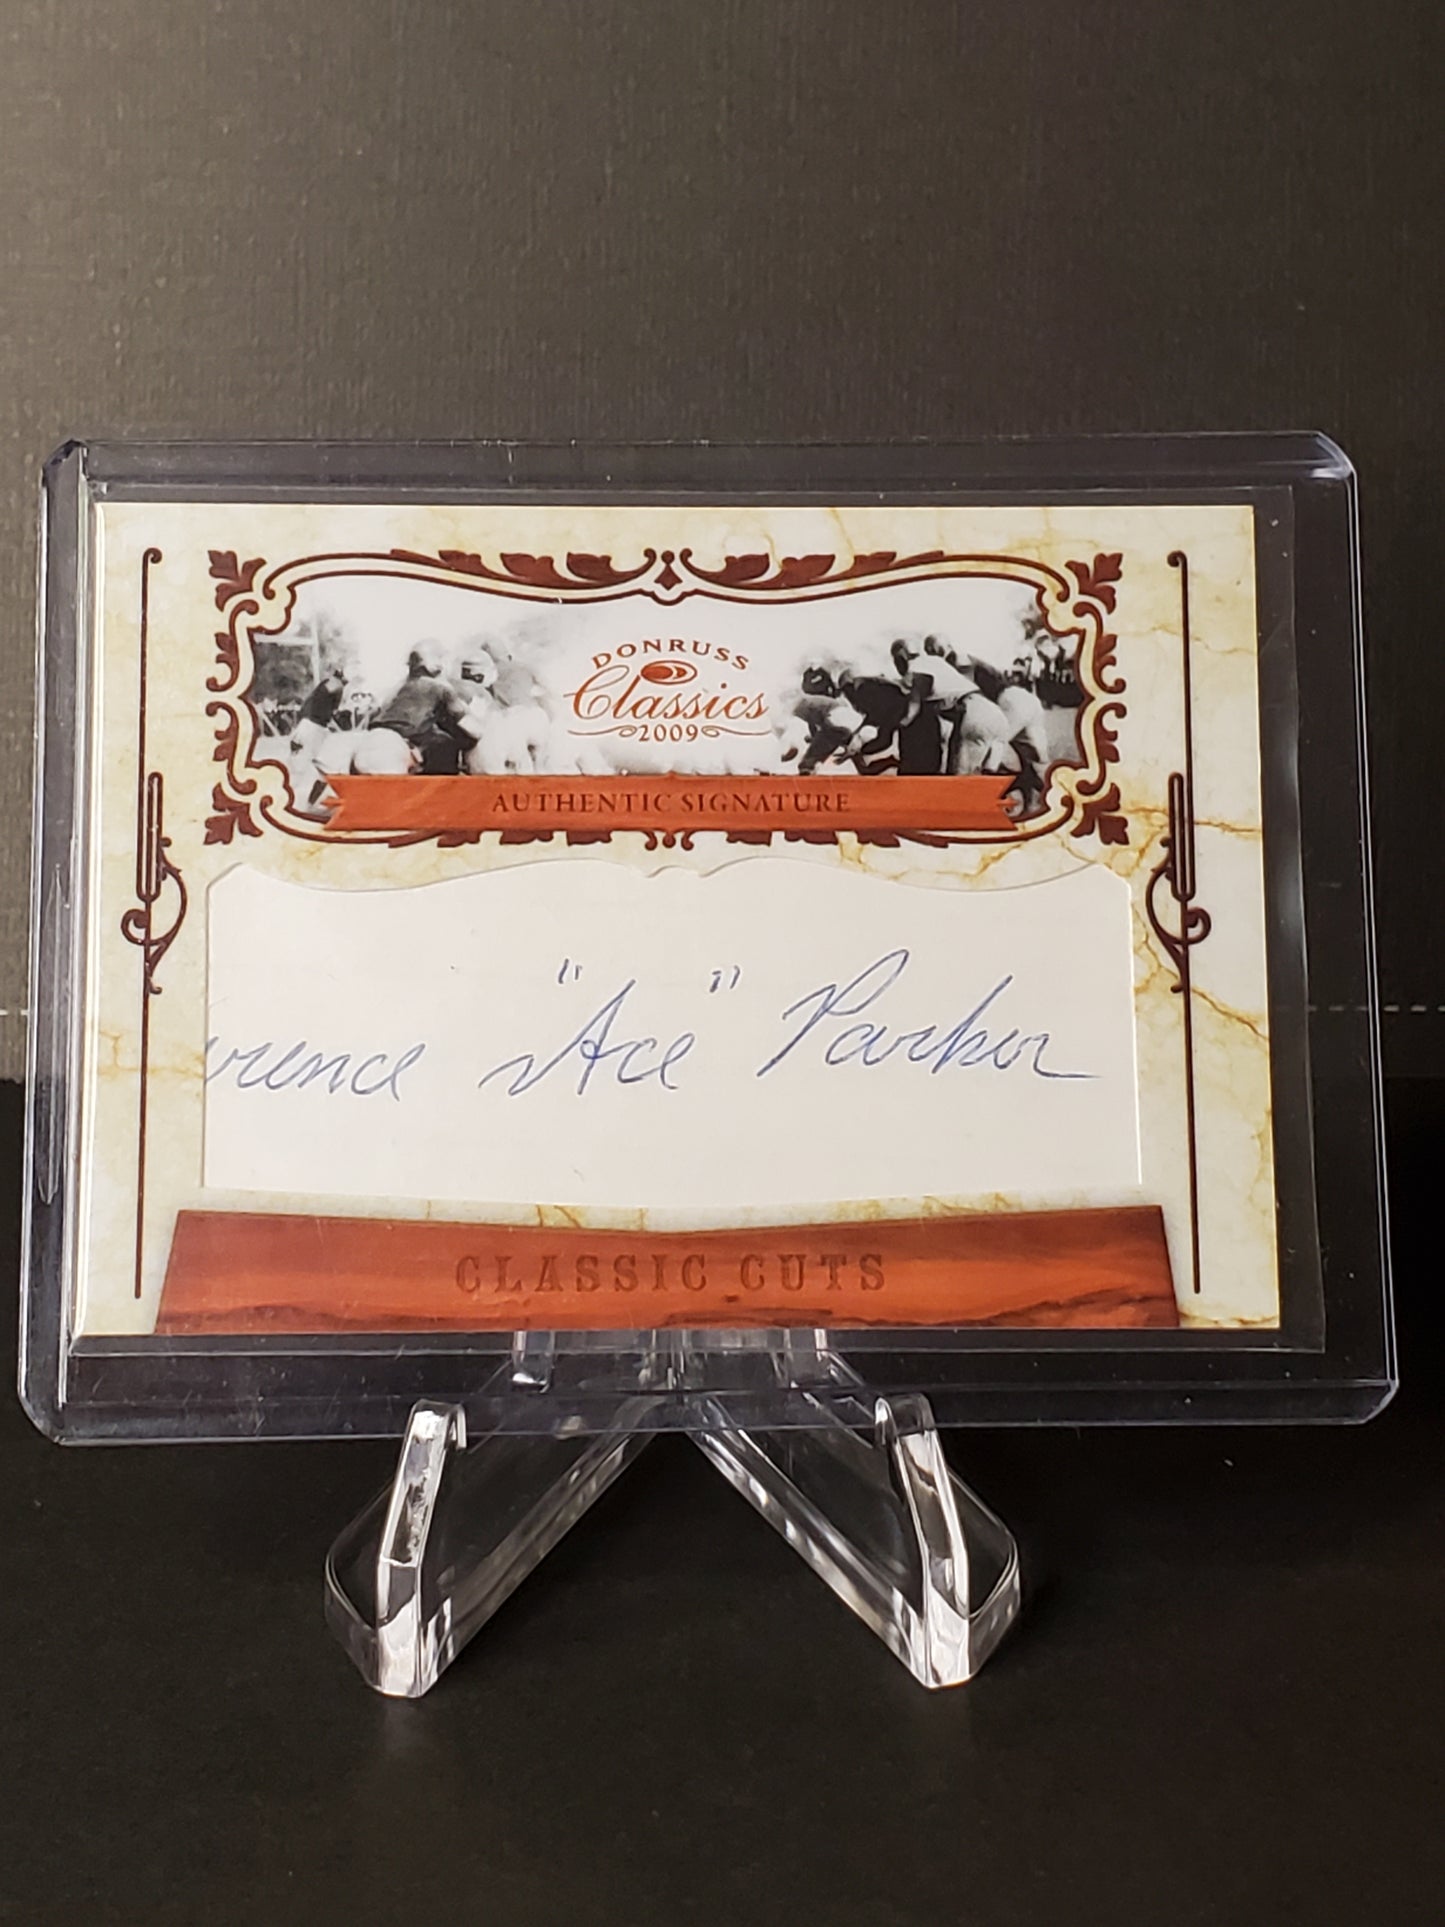 DONRUSS
Classics
2009
AUTHENTIC SIGNATURE
rence "Ace" Parker
CLASSIC CUTS